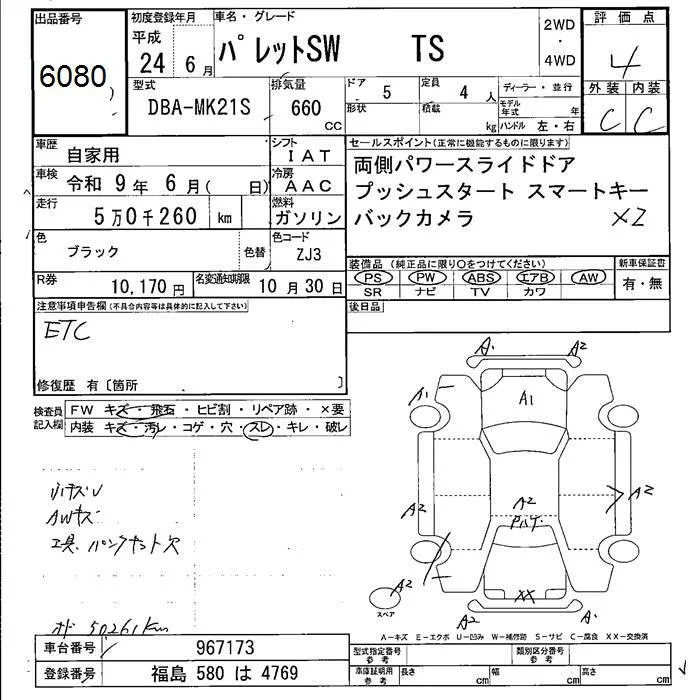 出品番号
6080
初度登録年月
平成
24 6月
車名・グレード
パレットSW TS
2WD
・
4WD
評価点
4
外装 内装
C C
型式
DBA-MK21S
排気量
660
CC
ドア
5
定員
4 人
形状
積載
kg
ディーラー・並行
モデル年式 年
ハンドル 左・右
車歴
自家用
シフト
IAT
車検
令和 9年 6月( 日)
冷房
AAC
走行
5万0千260 km
燃料
ガソリン
色
ブラック
色替
色コード
ZJ3
セールスポイント(正常に機能するものに限ります)
両側パワースライドドア
プッシュスタート スマートキー
バックカメラ ×2
R券
10,170円
名変通知期限
10月30日
装備品(純正品に限り〇をつけてください)
PS PW ABS エアB AW
SR ナビ TV カワ
新車保証書
有・無
後日品
注意事項申告欄(不具合内容等は具体的に記入して下さい)
ETC
修復歴 有〔箇所 〕
検査員
記入欄
FW キズ・飛石・ヒビ割・リペア跡・×要
内装 キズ・汚レ・コゲ・穴・スレ・キレ・破レ
小キズU
AWキズ
工具、パンクキット欠
オド 50261Km
A1 A2
A1
A1
A2
A2
A2
P
A2
スペア
XX
A2 A1
A-キズ E-エクボ U-凹み W-補修跡 S-サビ C-腐食 XX-交換済
車台番号
967173
登録番号
福島 580 は 4769
型式指定番号
参考
類別区分番号
参考
車庫証明用
参考
長さ cm
幅 cm
高さ cm